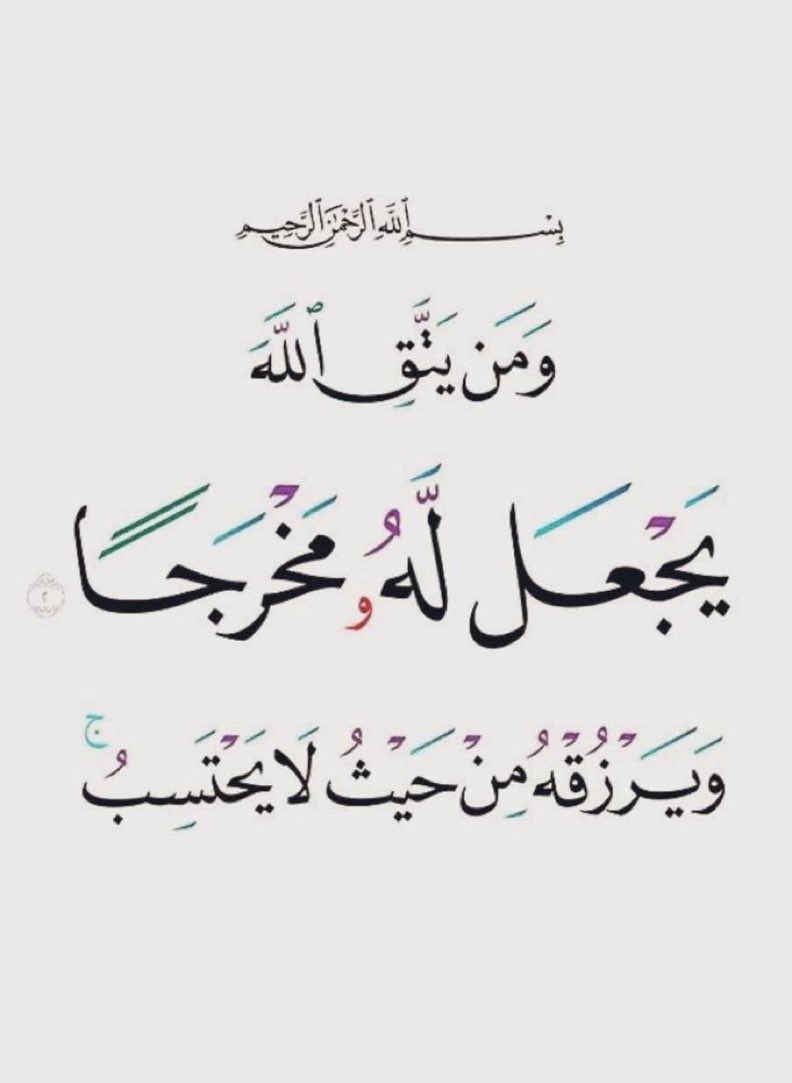 بِسْمِ ٱللَّهِ ٱلرَّحْمَٰنِ ٱلرَّحِيمِ
وَمَن يَتَّقِ ٱللَّهَ
يَجْعَل لَّهُۥ مَخْرَجًا ٢
وَيَرْزُقْهُ مِنْ حَيْثُ لَا يَحْتَسِبُ ۚ